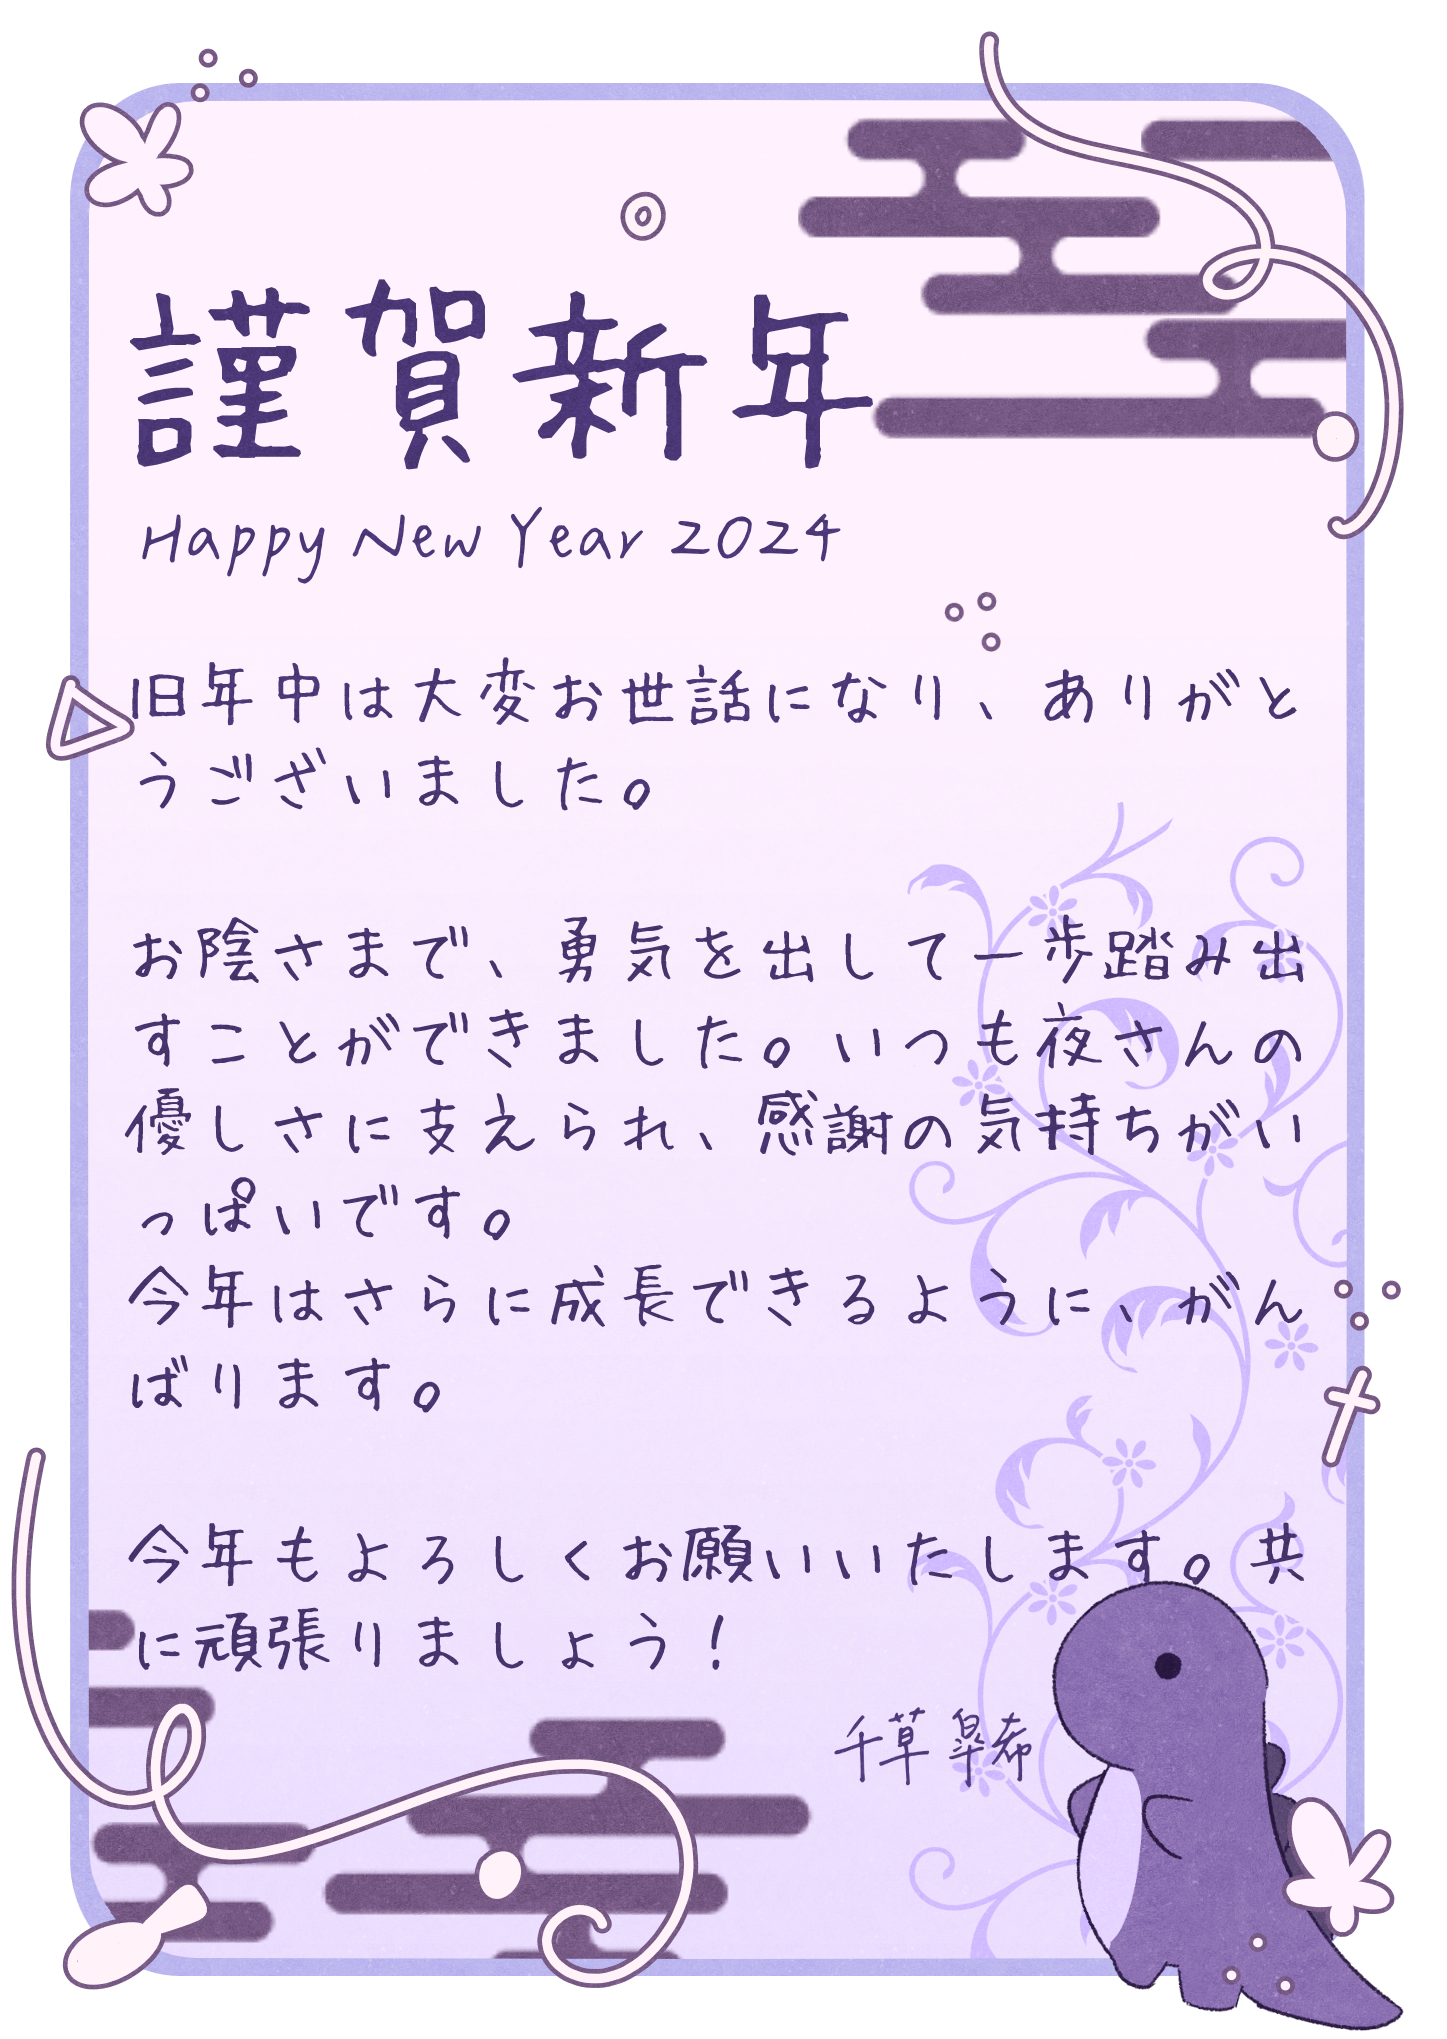 謹賀新年
Happy New Year 2024
旧年中は大変お世話になり、ありがと
うございました。
お陰さまで、勇気を出して一歩踏み出
すことができました。いつも夜さんの
優しさに支えられ、感謝の気持ちがい
っぱいです。
今年はさらに成長できるように、がん
ばります。
今年もよろしくお願いいたします。共
に頑張りましょう！
千草 皐希